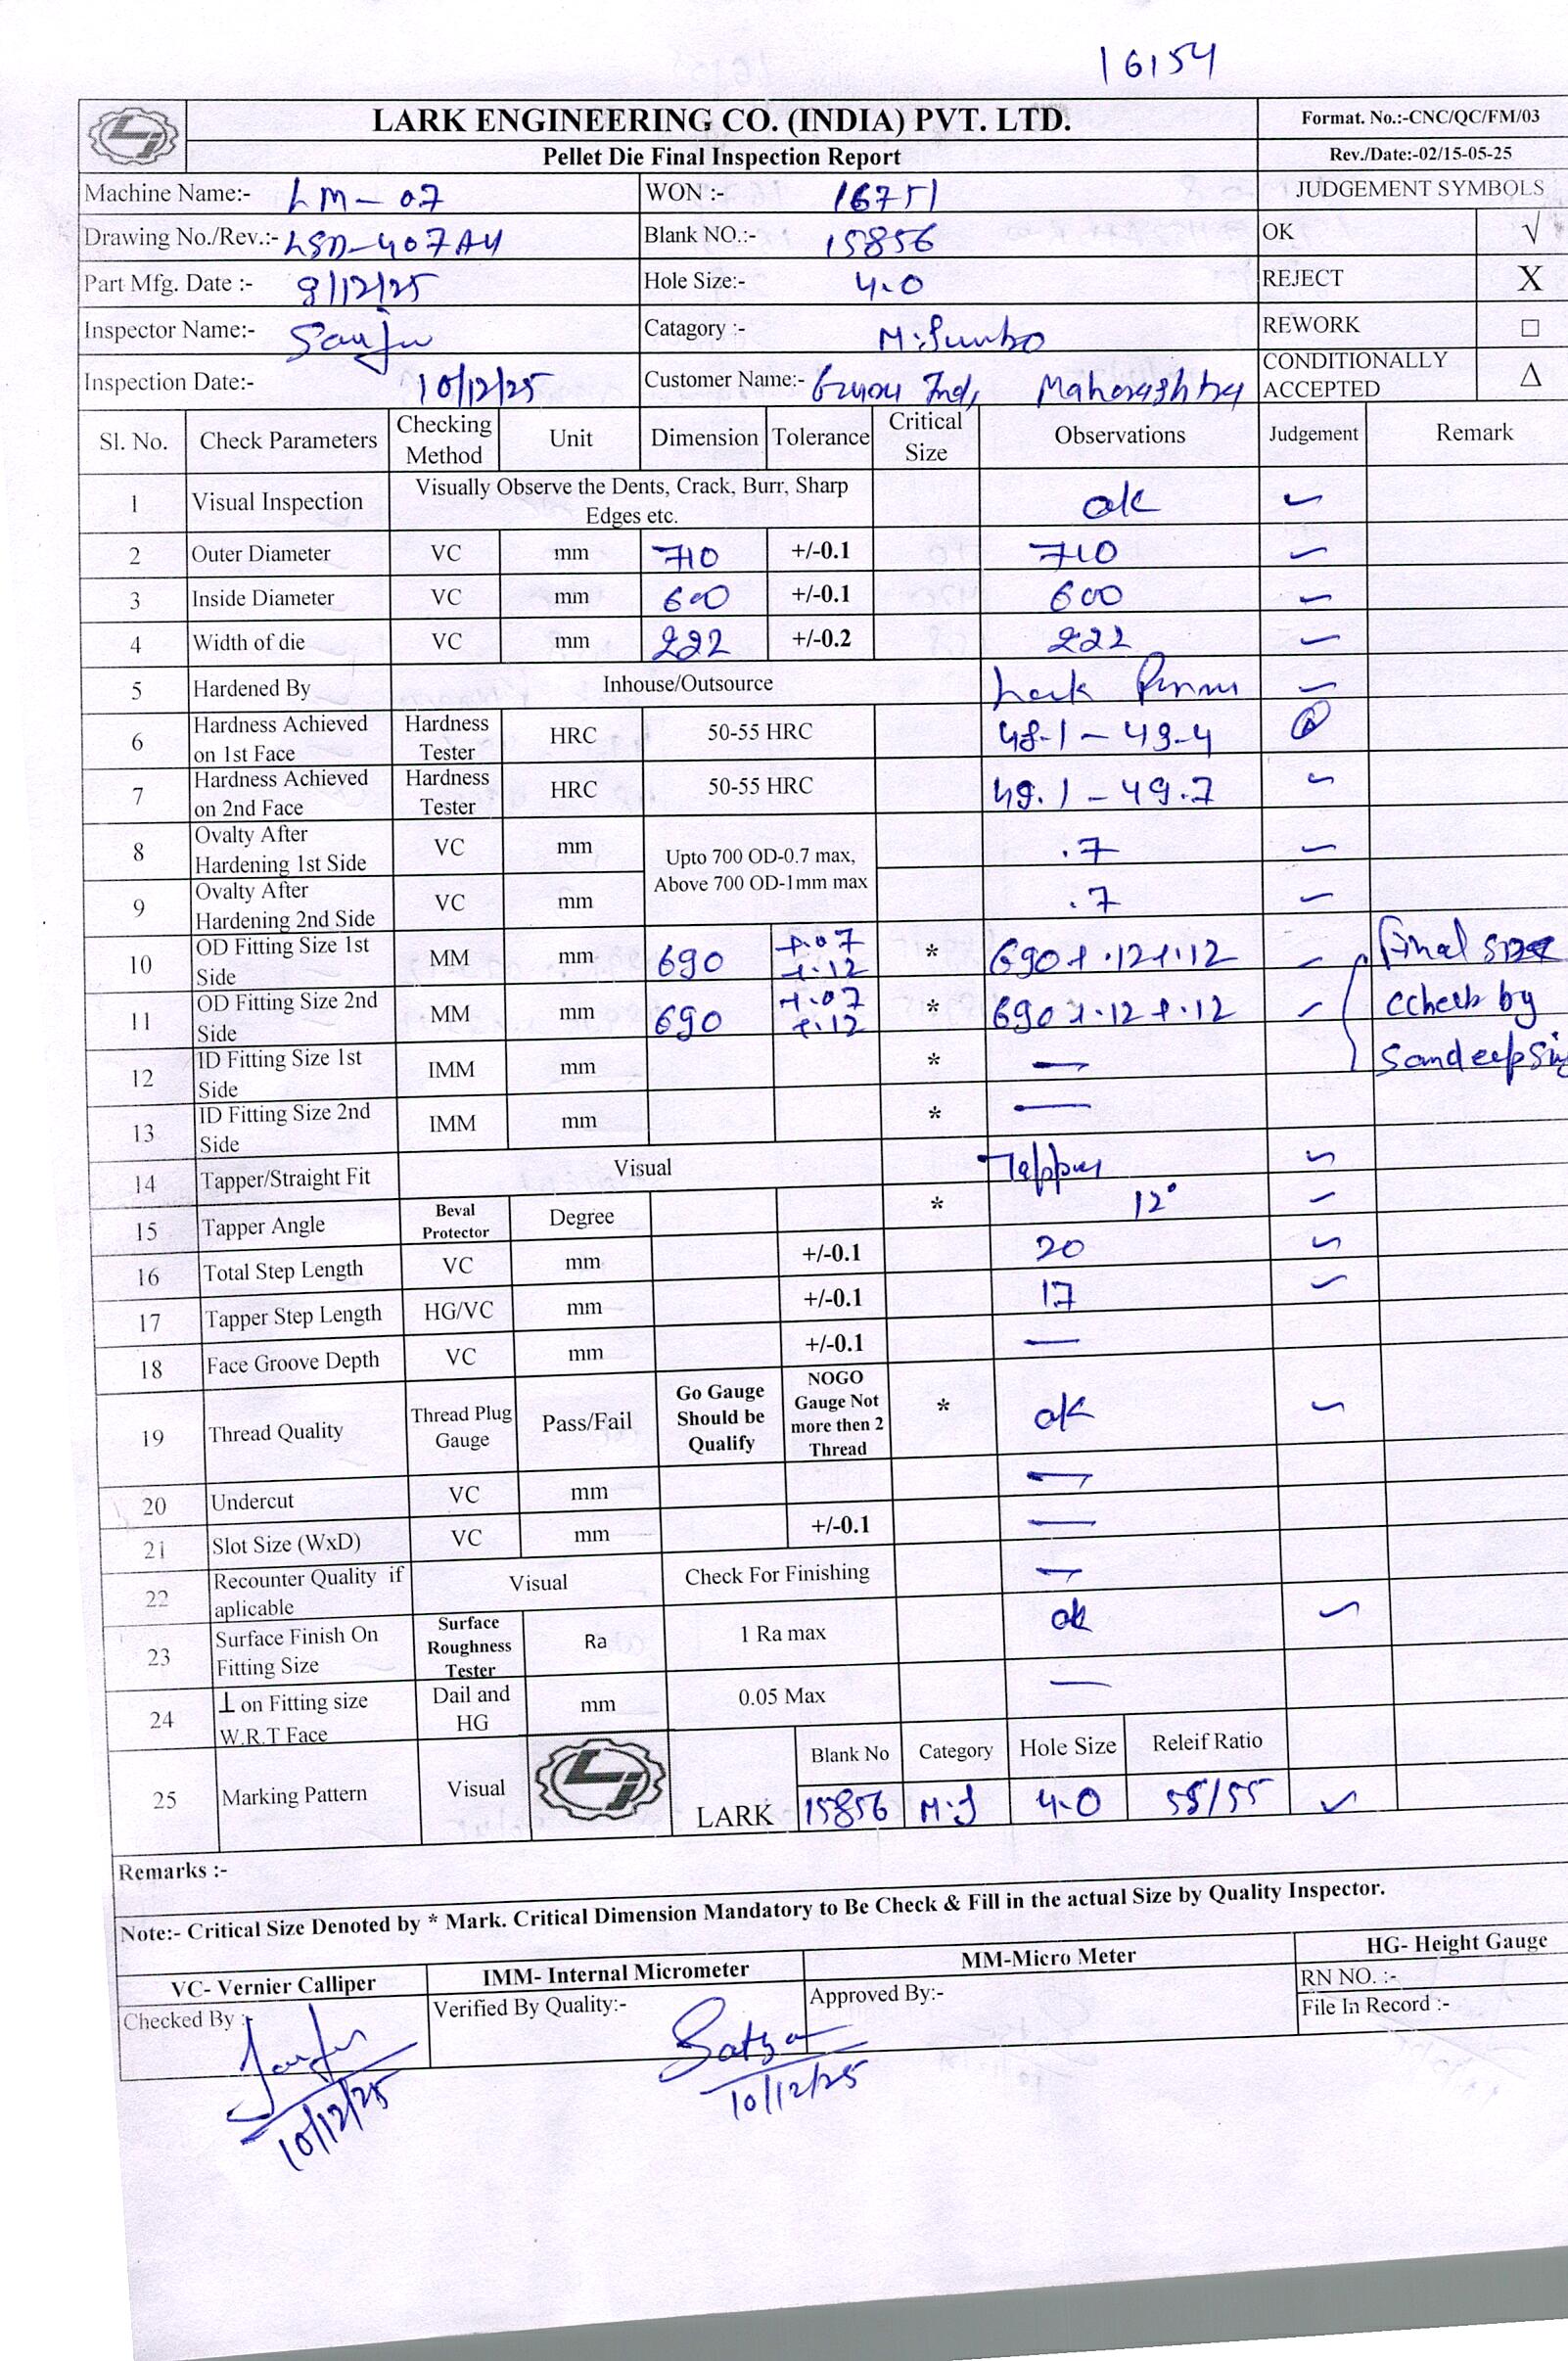 16154
LARK ENGINEERING CO. (INDIA) PVT. LTD.
Format. No.:-CNC/QC/FM/03
Pellet Die Final Inspection Report
Rev./Date:-02/15-05-25
Machine Name:- LM-07 WON :- 16751 JUDGEMENT SYMBOLS
Drawing No./Rev.:- LSD-407A4 Blank NO.:- 15856 OK √
Part Mfg. Date :- 8/12/25 Hole Size:- 4.0 REJECT X
Inspector Name:- Sanju Catagory :- M.Jumbo REWORK □
Inspection Date:- 10/12/25 Customer Name:- Ind, Maharashtra CONDITIONALLY ACCEPTED Δ
Sl. No. Check Parameters Checking Method Unit Dimension Tolerance Critical Size Observations Judgement Remark
1 Visual Inspection Visually Observe the Dents, Crack, Burr, Sharp Edges etc. ok ✓
2 Outer Diameter VC mm 710 +/-0.1 710 ✓
3 Inside Diameter VC mm 600 +/-0.1 600 ✓
4 Width of die VC mm 222 +/-0.2 222 ✓
5 Hardened By Inhouse/Outsource Lark ✓
6 Hardness Achieved on 1st Face Hardness Tester HRC 50-55 HRC 48.1 - 49.4
7 Hardness Achieved on 2nd Face Hardness Tester HRC 50-55 HRC 49.1 - 49.7 ✓
8 Ovalty After Hardening 1st Side VC mm Upto 700 OD-0.7 max, Above 700 OD-1mm max .7 ✓
9 Ovalty After Hardening 2nd Side VC mm .7 ✓
10 OD Fitting Size 1st Side MM mm 690 +.07 +.12 * 690+.12+.12 ✓ Final size
11 OD Fitting Size 2nd Side MM mm 690 +.07 +.12 * 690+.12+.12 ✓ Ccheck by
12 ID Fitting Size 1st Side IMM mm * — Sandeep
13 ID Fitting Size 2nd Side IMM mm * —
14 Tapper/Straight Fit Visual Tapper ✓
15 Tapper Angle Beval Protector Degree * 12° ✓
16 Total Step Length VC mm +/-0.1 20 ✓
17 Tapper Step Length HG/VC mm +/-0.1 17 ✓
18 Face Groove Depth VC mm +/-0.1 —
19 Thread Quality Thread Plug Gauge Pass/Fail Go Gauge Should be Qualify NOGO Gauge Not more then 2 Thread * ok ✓
20 Undercut VC mm —
21 Slot Size (WxD) VC mm +/-0.1 —
22 Recounter Quality if aplicable Visual Check For Finishing —
23 Surface Finish On Fitting Size Surface Roughness Tester Ra 1 Ra max ok ✓
24 ⊥ on Fitting size W.R.T Face Dail and HG mm 0.05 Max —
25 Marking Pattern Visual LARK Blank No Category Hole Size Releif Ratio
15856 M.J 4.0 55/55 ✓
Remarks :-
Note:- Critical Size Denoted by * Mark. Critical Dimension Mandatory to Be Check & Fill in the actual Size by Quality Inspector.
VC- Vernier Calliper IMM- Internal Micrometer MM-Micro Meter HG- Height Gauge
Checked By :- Verified By Quality:- Approved By:- RN NO. :-
File In Record :-
Sanju Satya
10/12/25 10/12/25